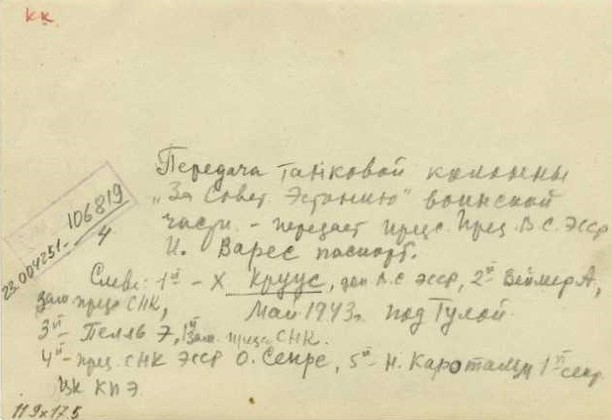 кк.
Передача танковой колонны
„За Совет. Эстонию" воинской
части. - передает предс. През. В С ЭССР
И. Варес паспорт.
106819
23.004251-
4
Слева: 1й - Х Круус, деп В.С ЭССР, 2й Веймер А,
зам. предс СНК, Май 1943г. под Тулой.
3й - Пелль Э, 1й зам. предс СНК.
4й - пред. СНК ЭССР О. Сепре, 5й - Н. Каротамм 1й секр.
ЦК КП Э.
11.9 х 17.5